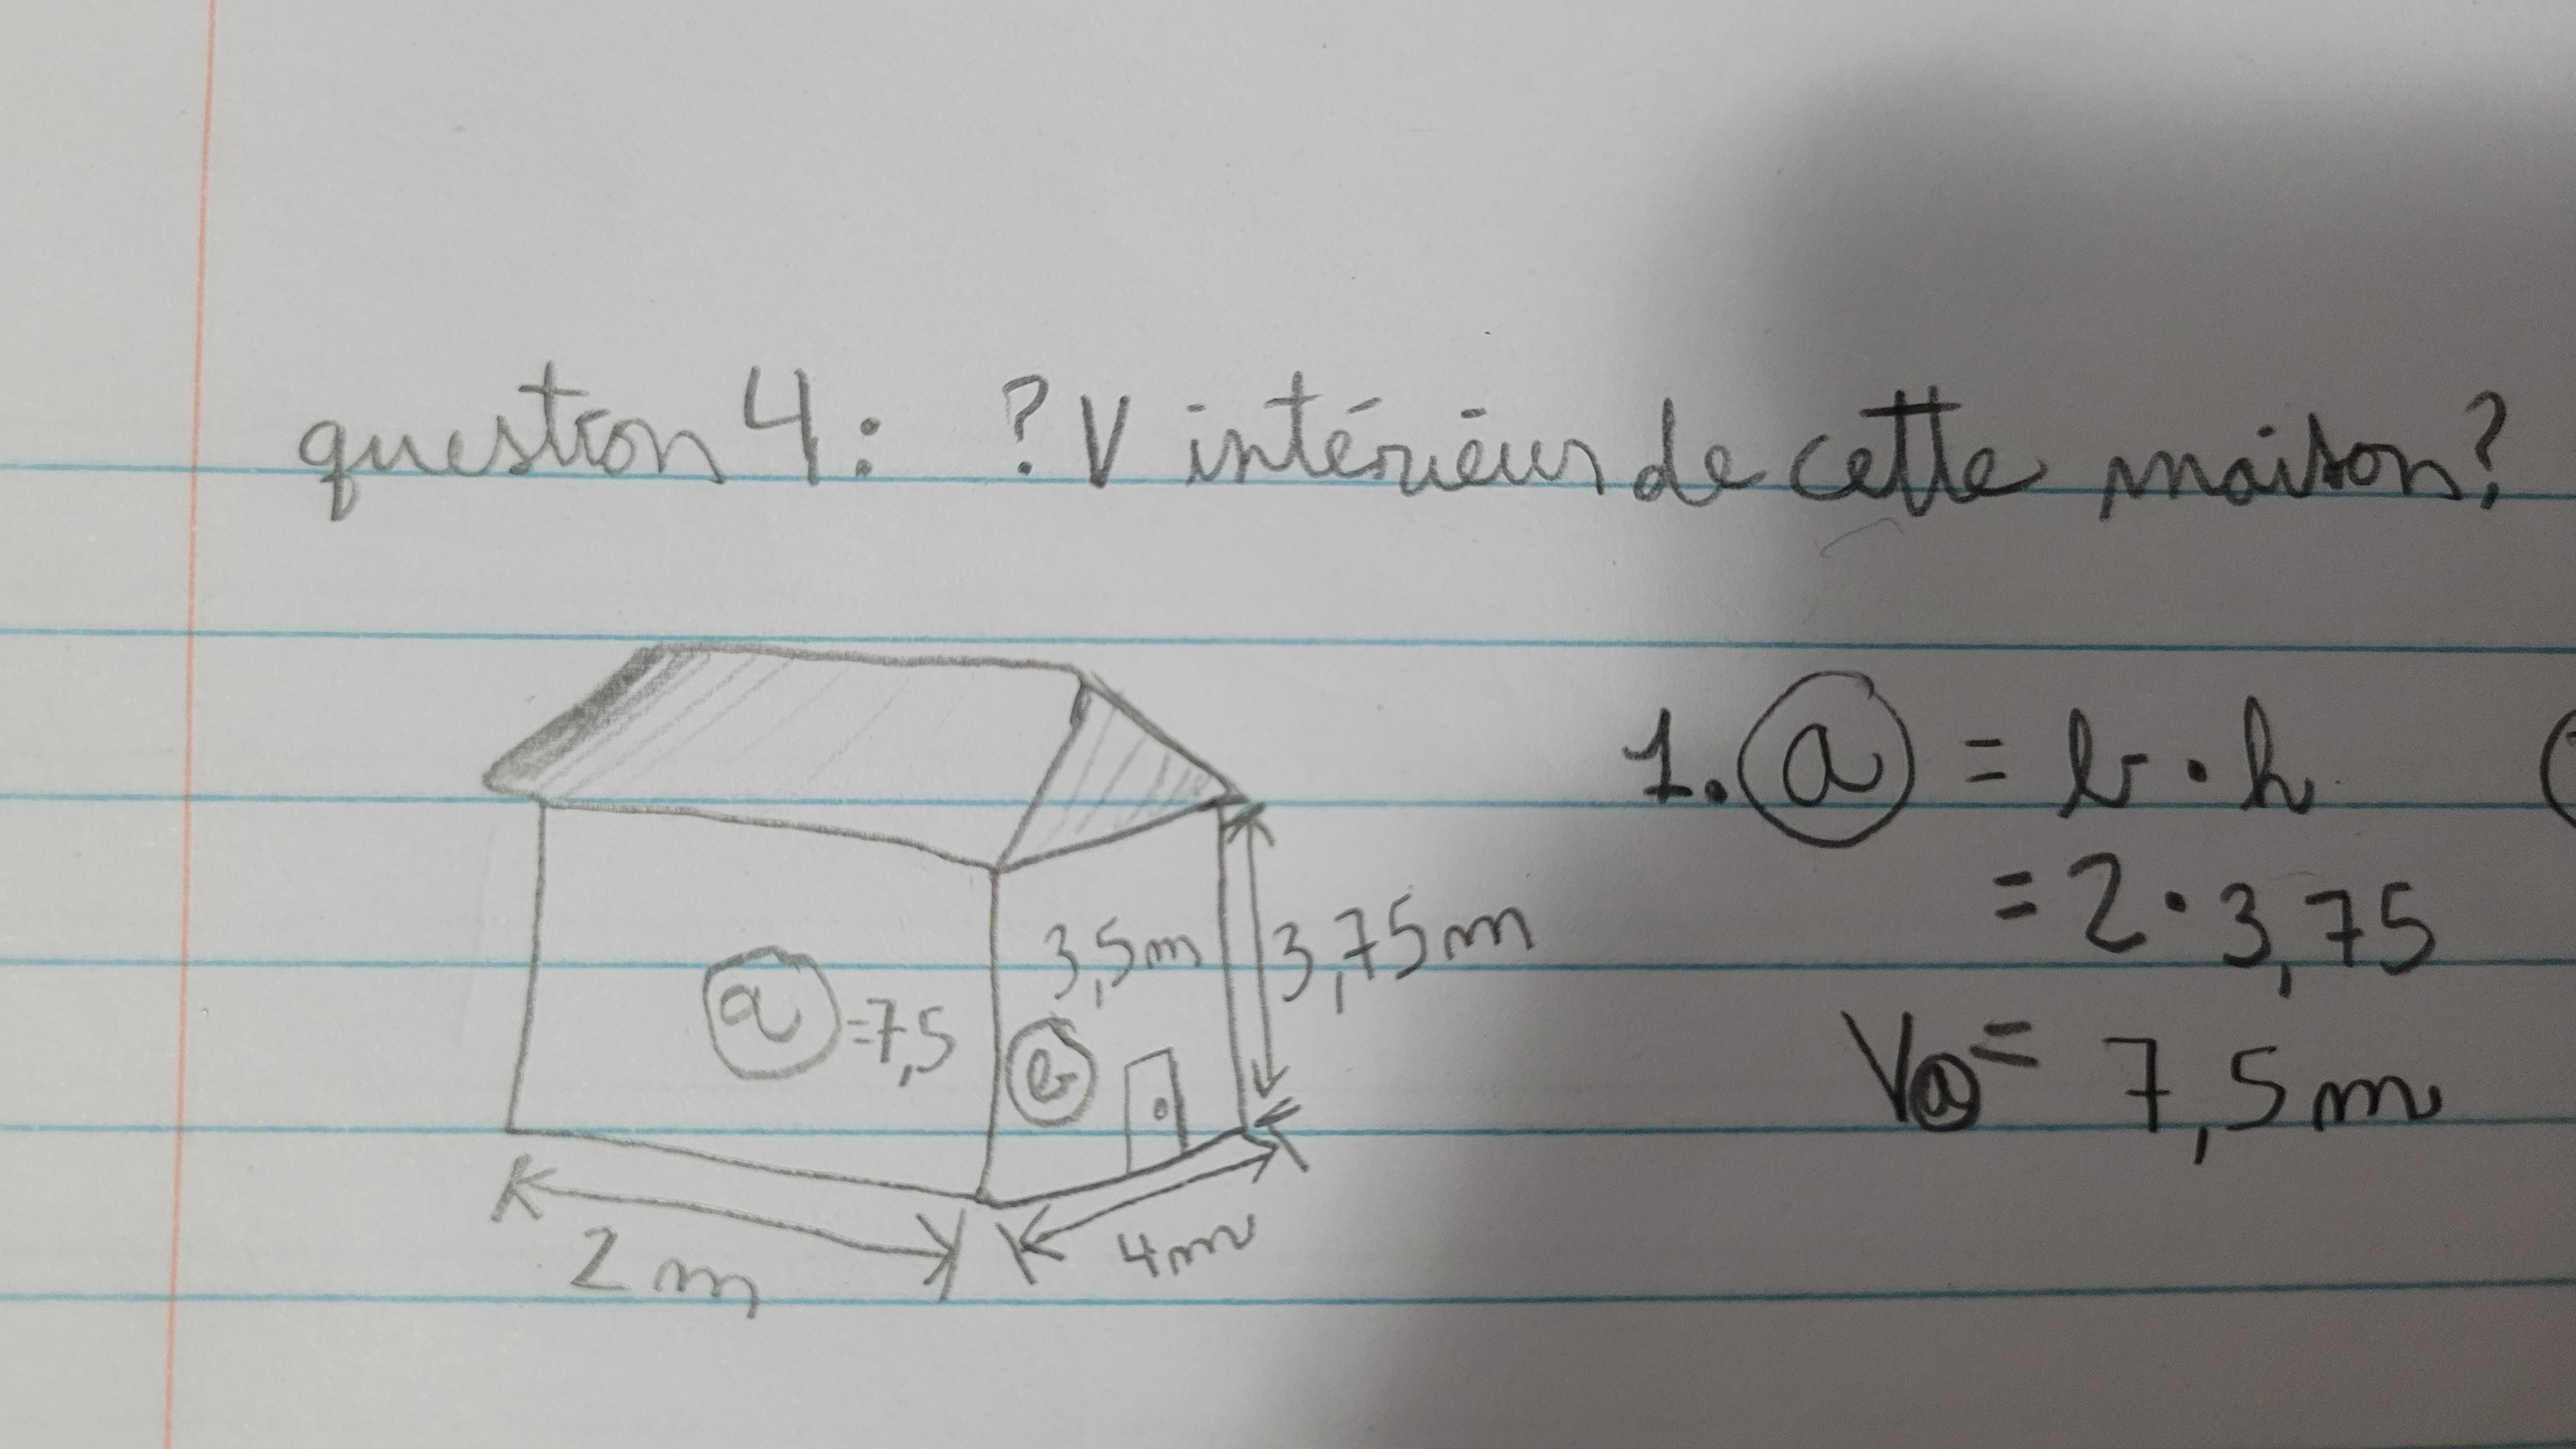 question 4: ? V intérieur de cette maison?
1. a = b · h
= 2 · 3,75
Va = 7,5 m
3,5m
3,75m
a = 7,5
b
2 m
4m